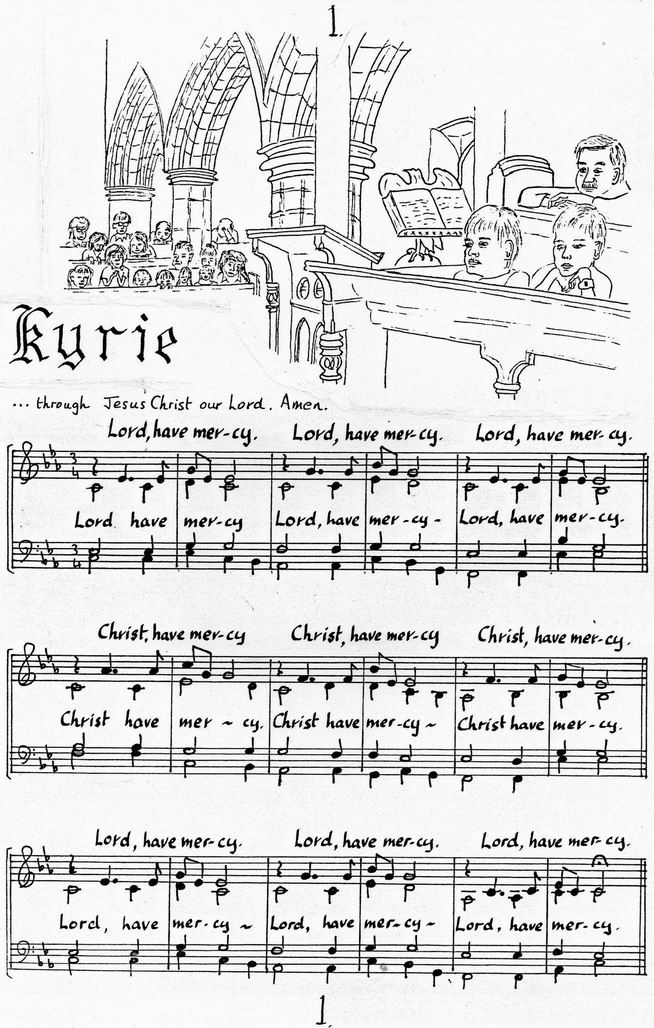 1.
Kyrie
... through Jesus Christ our Lord. Amen.
Lord, have mer-cy. Lord, have mer-cy. Lord, have mer-cy.
3 4
Lord have mer-cy Lord, have mer-cy- Lord, have mer-cy.
3 4
Christ, have mer-cy Christ, have mer-cy Christ, have mer-cy.
Christ have mer ~ cy. Christ have mer-cy ~ Christ have mer-cy.
Lord, have mer-cy. Lord, have mer-cy. Lord, have mer-cy.
Lord, have mer-cy ~ Lord, have mer-cy ~ Lord, have mer-cy.
1.